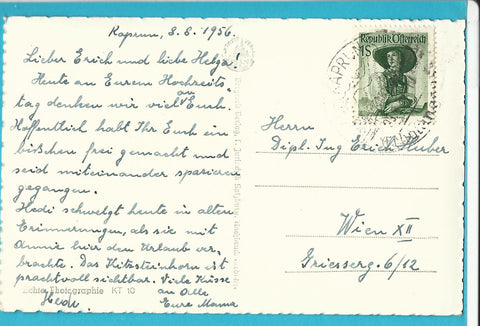 Kaprun, 8.8.1956.
Lieber Erich und liebe Helga.
Heute an Eurem Hochzeits-
tag denken wir viel an Euch.
Hoffentlich habt Ihr Euch ein
bißchen frei gemacht und
seid miteinander spazieren
gegangen.
Hedi schwelgt heute in alten
Erinnerungen, als sie mit
hier den Urlaub ver-
brachte. Das Kitzsteinhorn ist
prachtvoll sichtbar. Viele Küsse
an Alle
Hedi Eure Mama
Echte Photographie KT 10
Republik Österreich
1 S
Herrn
Dipl. Ing Erich Huber
Wien XII
6/12